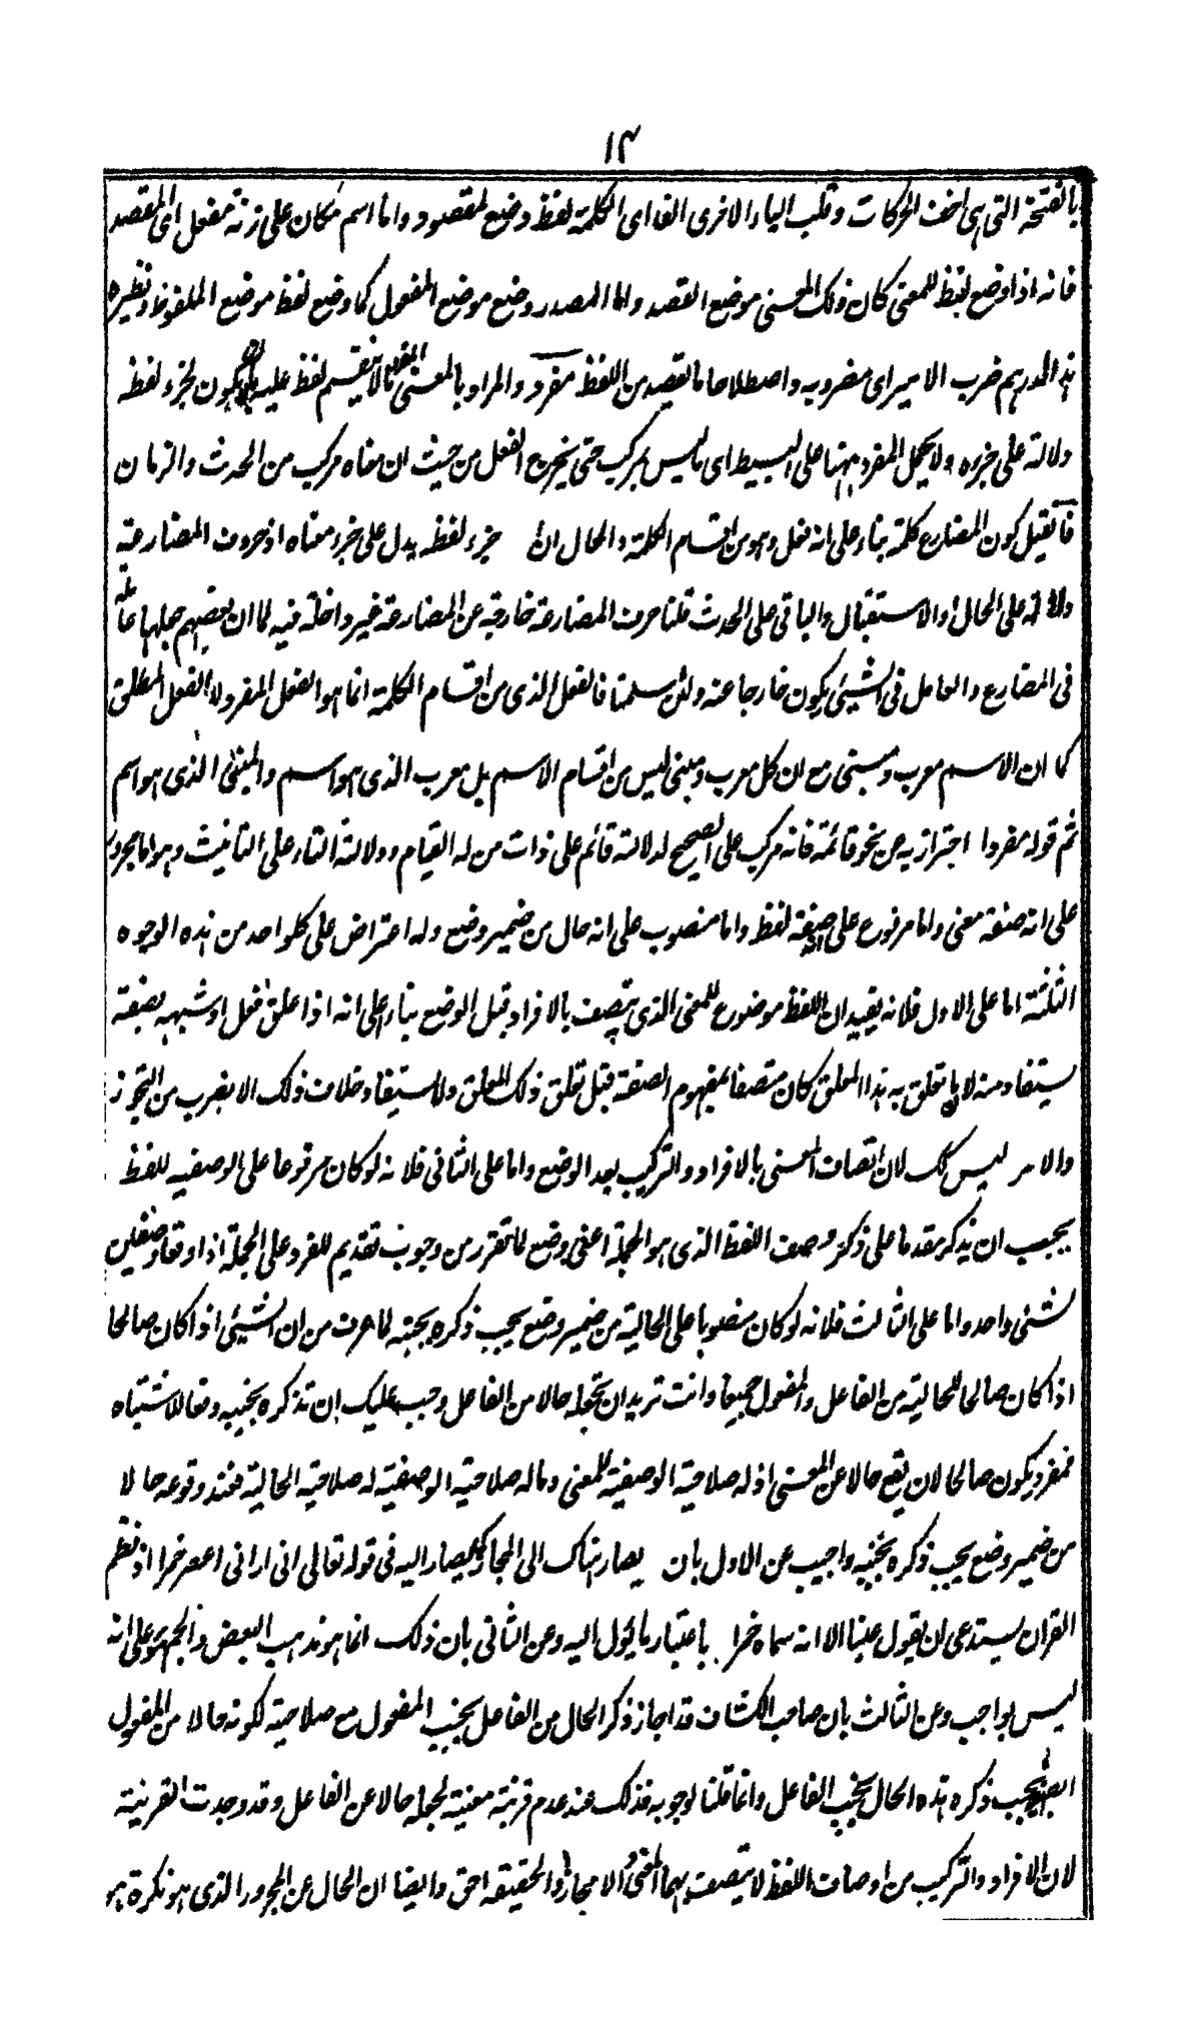 ١٣
بالفتحة التى هى اخف الحركات وقلب الياء الاخرى الفا اى الكلمة لفظ وضع لمقصود واما اسم مكان على زنة مفعل اى المقصد
فانه اذا وضع لفظ للمعنى كان ذلك المعنى موضع القصد واما المصدر وضع موضع المفعول كما وضع لفظ موضع الملفوظ ونظيره
هذا الدرهم ضرب الامير اى مضروبه واصطلاحا ما يقصد من اللفظ مفرد والمراد بالمعنى المفرد ما لا ينقسم لفظ عليه يكون لجزء لفظه
دلالة على جزءه ولا يحمل المفرد ههنا على البسيط اى ما ليس بمركب حتى يخرج الفعل من حيث ان معناه مركب من الحدث والزمان
فان قيل كون المضارع كلمة بناء على انه فعل وهو من اقسام الكلمة والحال ان جزء لفظه يدل على جزء معناه اذ حروف المضارعة
دلالة على الحال او الاستقبال والباقى على الحدث قلنا حرف المضارعة خارجة عن المضارعة غير داخلة فيه لما ان بعضهم جعلها عاملة
فى المضارع والعامل فى الشيئ يكون خارجا عنه ولئن سلمنا فالفعل الذى من اقسام الكلمة انما هو الفعل المفرد لا الفعل المطلق
كما ان الاسم معرب ومبنى مع ان كل معرب ومبنى ليس من اقسام الاسم بل معرب الذى هو اسم والمبنى الذى هو اسم
ثم قوله مفردا احترازبه عن نحو قائمة فانه مركب على الصحيح لدلالة قائم على ذات من له القيام ودلالة التاء على التانيث وهو اما مجرور
على انه صفة معنى واما مرفوع على صفة لفظ واما منصوب على انه حال من ضمير وضع وله اعتراض على كلواحد من هذه الوجوه
الثلثة اما على الاول فلانه يفيد ان اللفظ موضوع للمعنى الذى يتصف بالافراد قبل الوضع بناء على انه اذا علق فعل او شبهه بصفة
يستفاد منه لا ما تعلق به هذا المعلق كان متصفا بمفهوم الصفة قبل تعلق ذلك المعلق ولا يستفاد خلاف ذلك الا بضرب من التجوز
والامر ليس كك لان اتصاف المعنى بالافراد والتركيب بعد الوضع واما على الثانى فلانه لو كان مرفوعا على الوصفيه للفظ
يجب ان يذكر مقدما على ذكر وصف اللفظ الذى هو الجملة اعنى وضع لما تقرر من وجوب تقديم المفرد على الجملة اذا وقعا وصفين
لشئ واحد واما على الثالث فلانه لو كان منصوبا على الحالية من ضمير وضع يجب ذكره بجنبه لما عرف من ان الشيئ اذا كان صالحا
اذا كان صالحا للحالية من الفاعل والمفعول جميعا وانت تريد ان تجعله حالا من الفاعل وجب عليك ان تذكره بجنبه دفعا للاشتباه
فمفرد يكون صالحا لان يقع حالا عن المعنى اذ له صلاحية الوصفية للمعنى وما له صلاحية الوصفية له صلاحية الحالية فعند وقوعه حالا
من ضمير وضع يجب ذكره بجنبه واجيب عن الاول بان يصار هناك الى المجاز كما يصار اليه فى قوله تعالى انى ارانى اعصر خمرا اذ نظم
القران يستدعى ان يقول عنبا الا انه سماه خمرا باعتبار ما يؤل اليه وعن الثانى بان ذلك انما هو مذهب البعض والجمهور على انه
ليس بواجب وعن الثالث بان صاحب الكشاف قد اجاز ذكر الحال من الفاعل بجنب المفعول مع صلاحية لكونه حالا من المفعول
ايضا يجب ذكره هذه الحال بجنب الفاعل وانما قلنا لوجوبه فذلك عند عدم قرينة معينة لجعله حالا عن الفاعل وقد وجدت القرينة
لان الافراد والتركيب من اوصاف اللفظ لا يتصف بهما المعنى الا مجازا والحقيقة احق وايضا ان الحال عن المجرور الذى هو نكرة هو